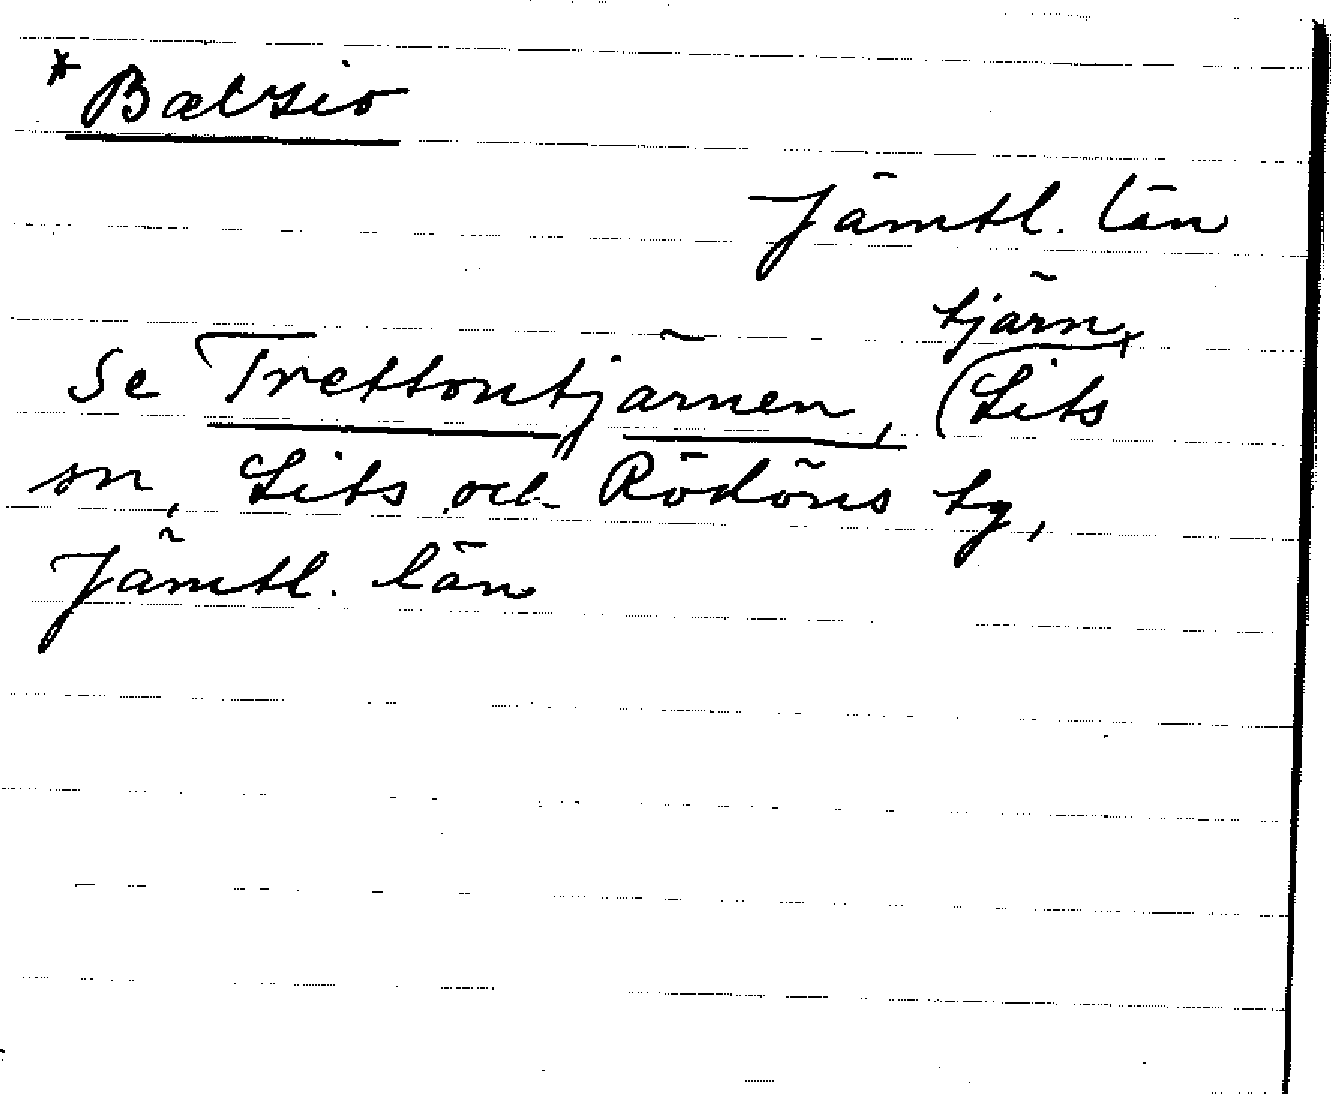 *Bælsio
Jämtl. län
Se Trettontjärnen, tjärn, Lits
sn, Lits och Rödöns tg,
Jämtl. län